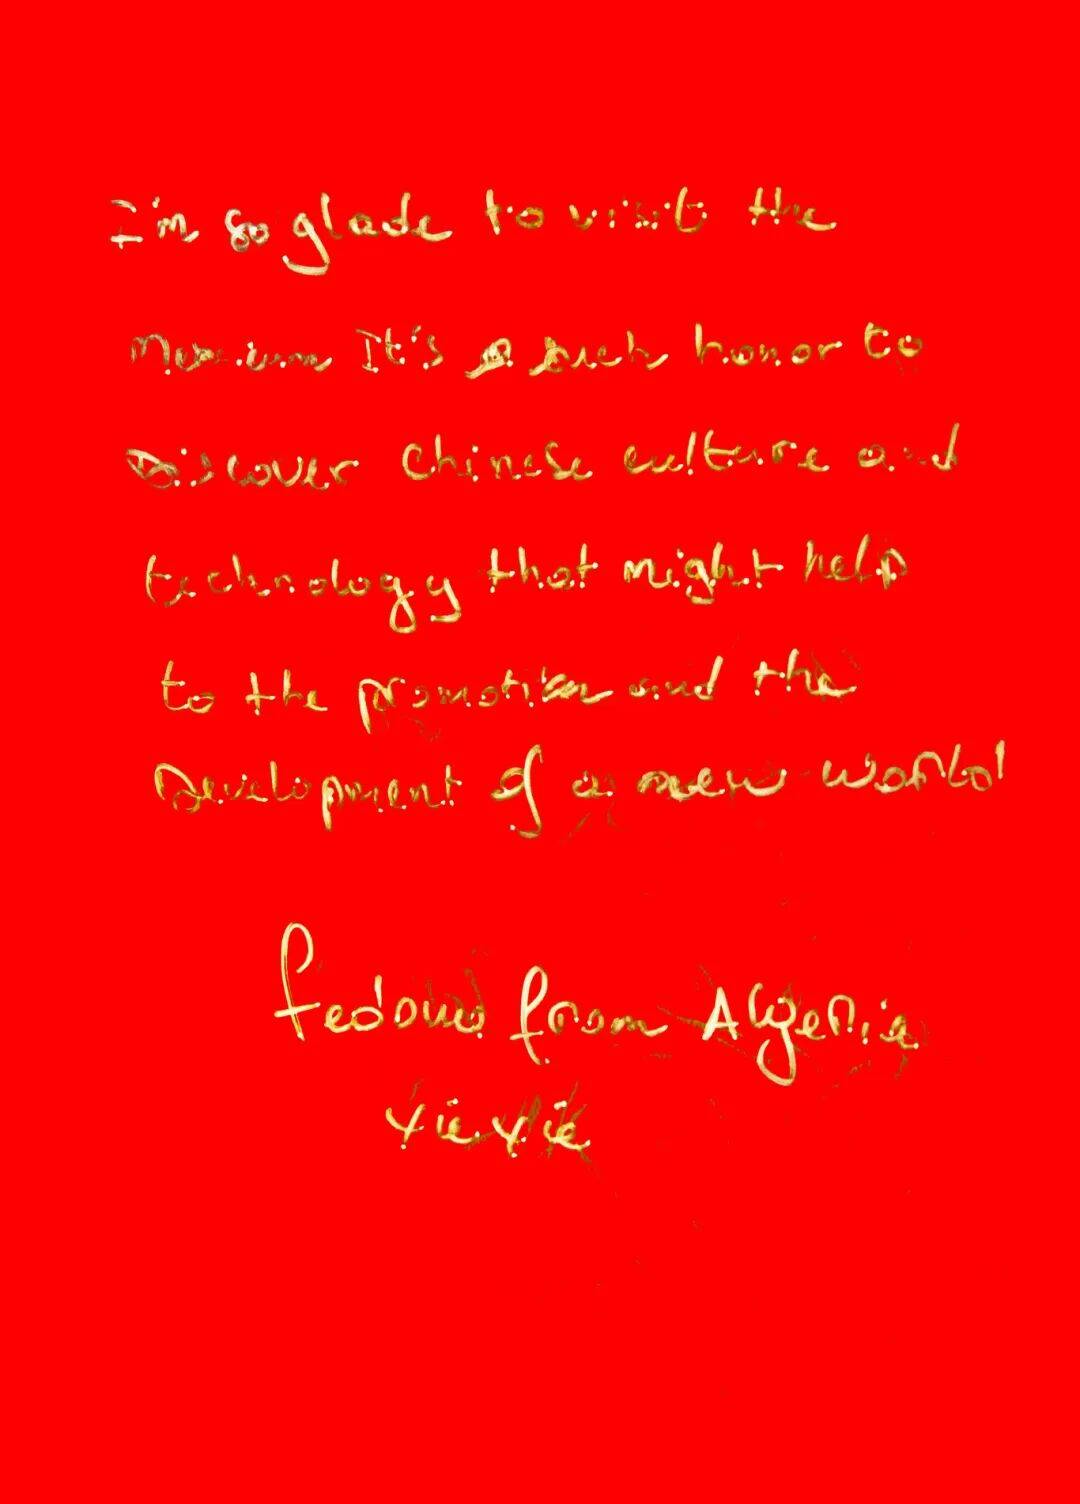 I'm so glade to visit the
Museum It's a such honor to
Discover Chinese culture and
technology that might help
to the promotion and the
Development of a new world
from Algeria
xie xie